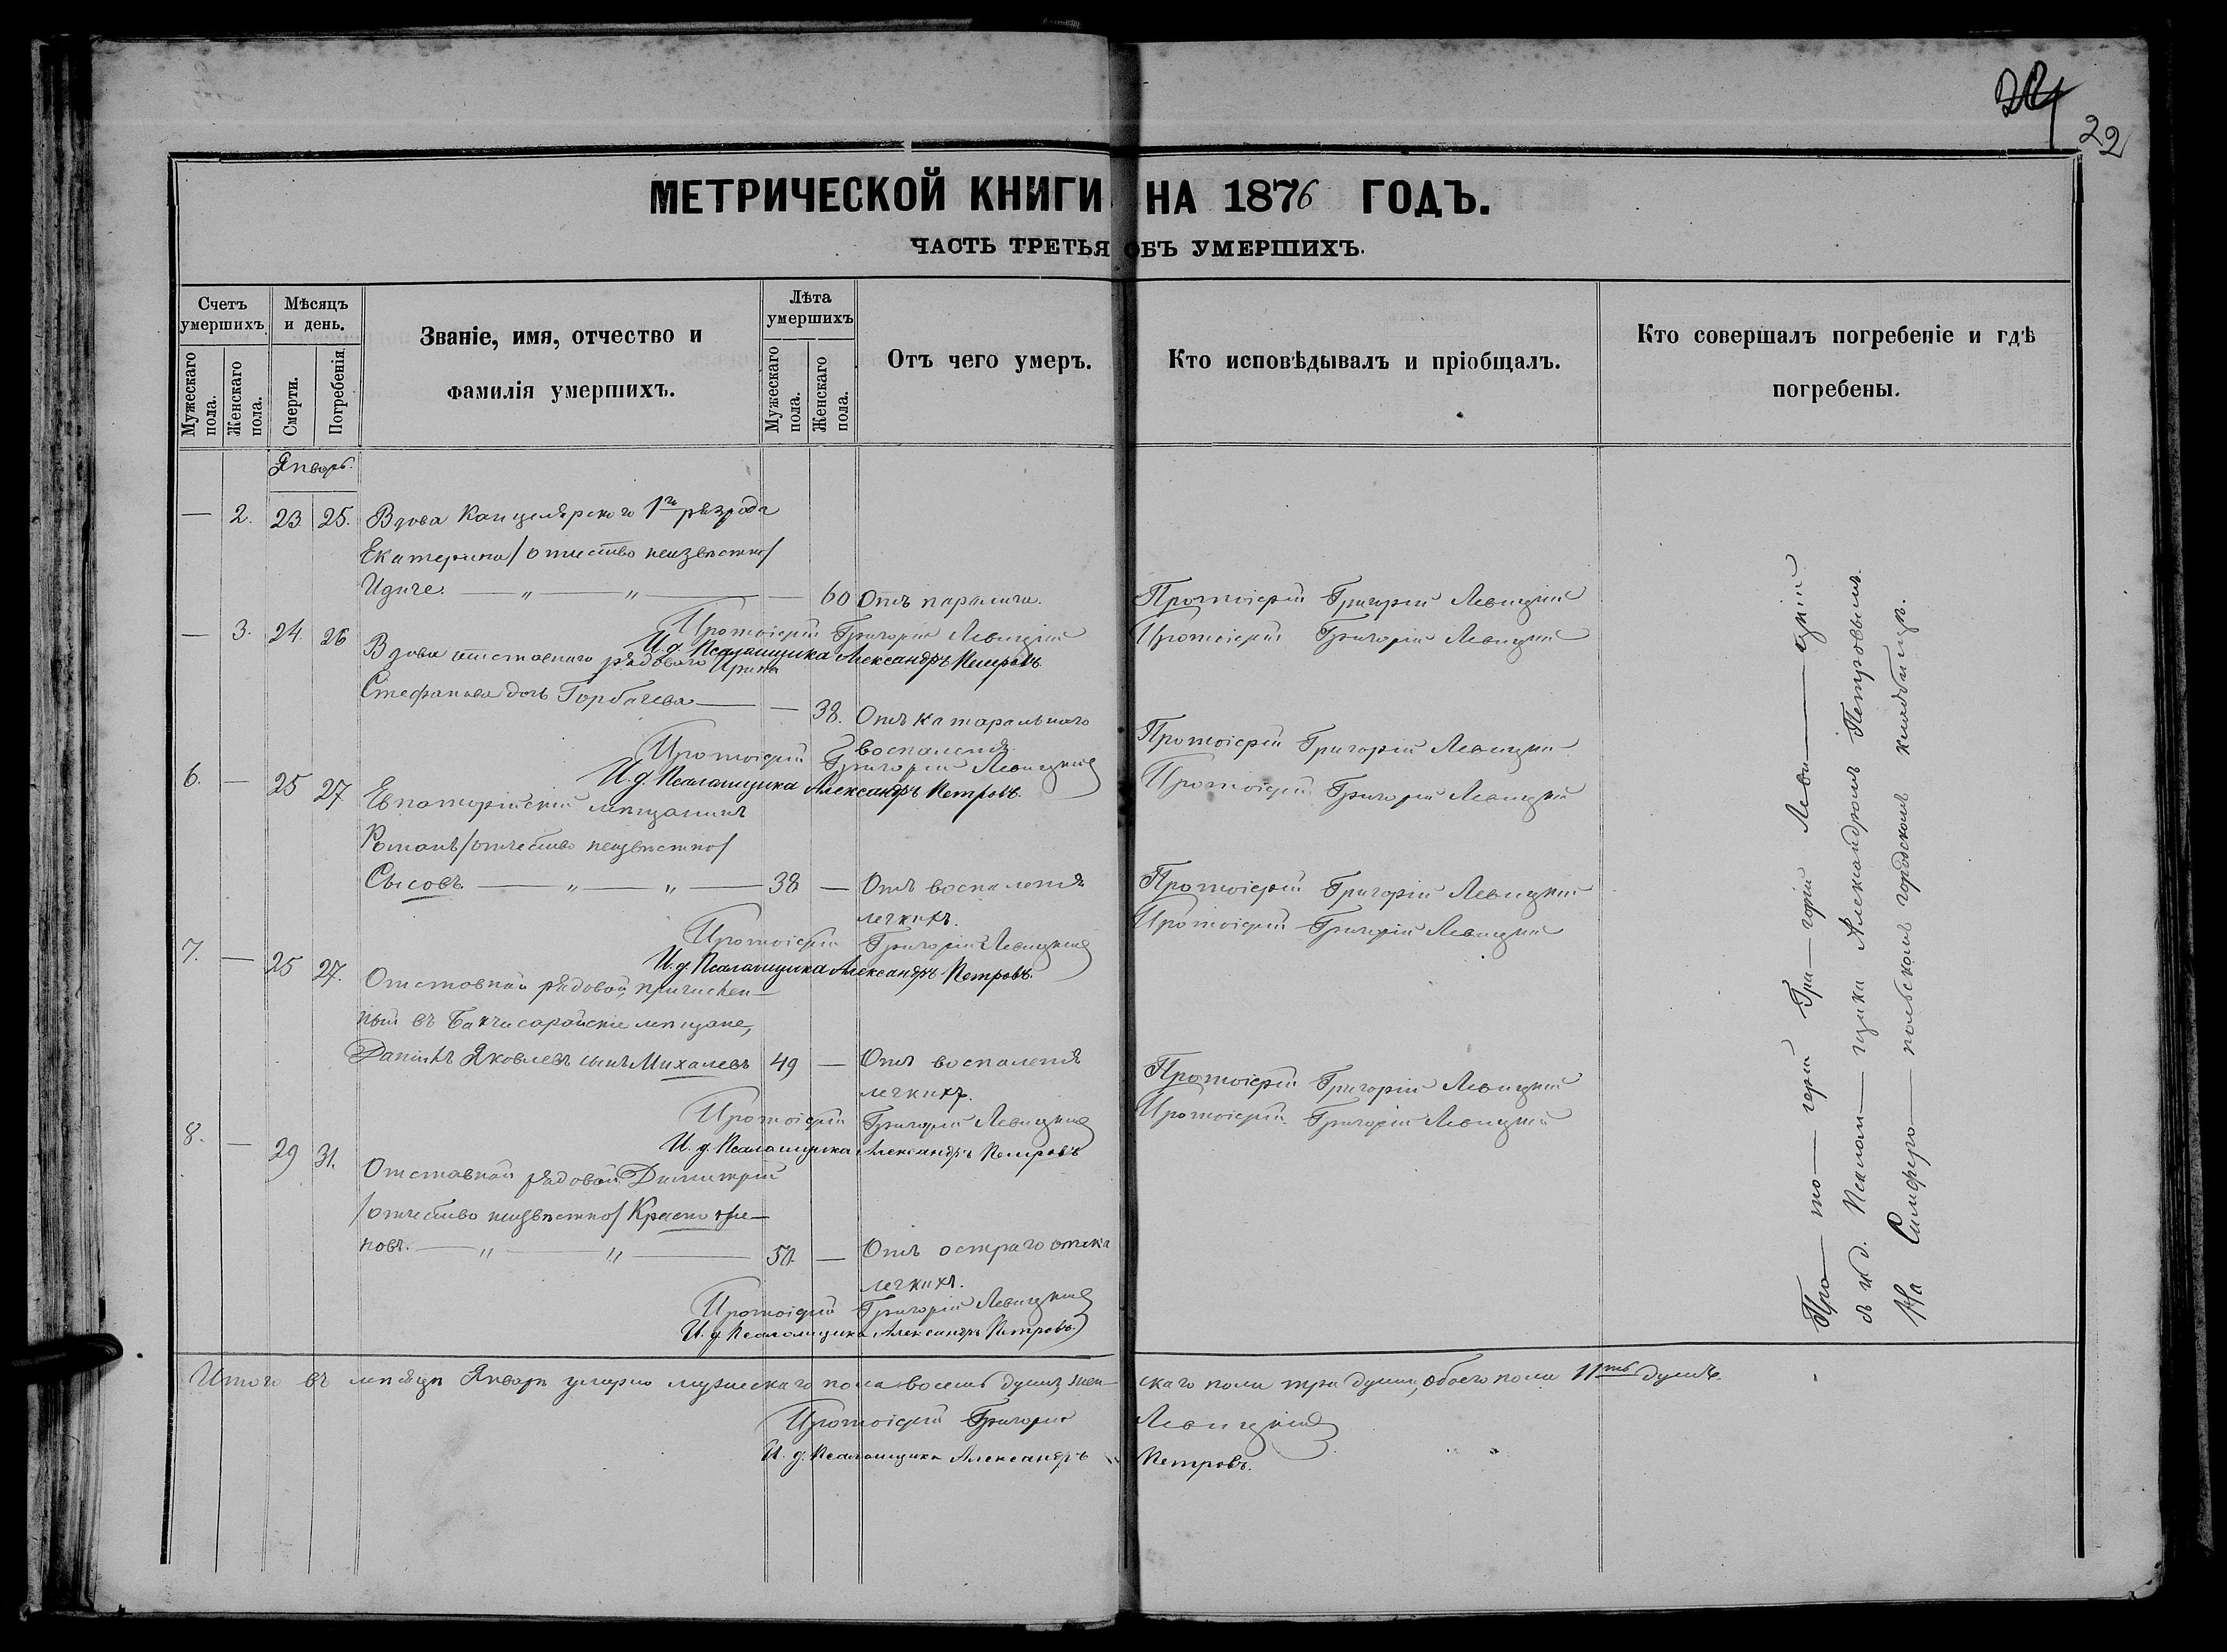 24
22
МЕТРИЧЕСКОЙ КНИГИ НА 1876 ГОДЪ.
ЧАСТЬ ТРЕТЬЯ ОБЪ УМЕРШИХЪ.
Счетъ умершихъ.
Мужескаго пола.
Женскаго пола.
Мѣсяцъ и день.
Смерти.
Погребенія.
Званіе, имя, отчество и
фамилія умершихъ.
Лѣта умершихъ
Мужескаго пола.
Женскаго пола.
Отъ чего умеръ.
Кто исповѣдывалъ и пріобщалъ.
Кто совершалъ погребеніе и гдѣ
погребены.
Январь.
— 2. 23 25. Вдова Канцелярскаго 1го разряда
Екатерина /отчество неизвѣстно/
Идиче. — „ — „ — — 60 Отъ паралича. Протоіерей Григорій Левицкій
Протоіерей Григорій Левицкій
И. д. Псаломщика Александръ Петровъ
— 3. 24 26 Вдова отставнаго рядоваго Ирина Протоіерей Григорій Левицкій
Стефанова дочь Горбачева — — 38. Отъ катаральнаго
воспаленія. Протоіерей Григорій Левицкій
Протоіерей Григорій Левицкій
И. д. Псаломщика Александръ Петровъ.
6. — 25 27 Евпаторійскій мѣщанинъ Протоіерей Григорій Левицкій
Романъ /отчество неизвѣстно/
Сысовъ — „ — „ — 38 — Отъ воспаленія Протоіерей Григорій Левицкій
легкихъ.
Протоіерей Григорій Левицкій
И. д. Псаломщика Александръ Петровъ.
7. — 25 27. Отставной рядовой, причислен- Протоіерей Григорій Левицкій
ный въ Бахчисарайскіе мѣщане,
Даніилъ Яковлевъ сынъ Михалевъ 49 — Отъ воспаленія Протоіерей Григорій Левицкій
легкихъ.
Протоіерей Григорій Левицкій
И. д. Псаломщика Александръ Петровъ
8. — 29 31. Отставной рядовой Димитрій Протоіерей Григорій Левицкій
/отчество неизвѣстно/
новъ. — „ — „ — — Отъ остраго отека
легкихъ.
Протоіерей Григорій Левицкій
И. д. Псаломщика Александръ Петровъ.
Про — то — іерей Гри — горій Леви — цкій
съ и. д. Псалом — щика Александромъ Петровымъ.
На Симферо — польскомъ городскомъ кладбищѣ.
Итого въ мѣсяцѣ Январѣ умерло мужескаго пола восемь душъ, жен- скаго пола три души, обоего пола 11ть душъ.
Протоіерей Григорій Левицкій
И. д. Псаломщика Александръ Петровъ.